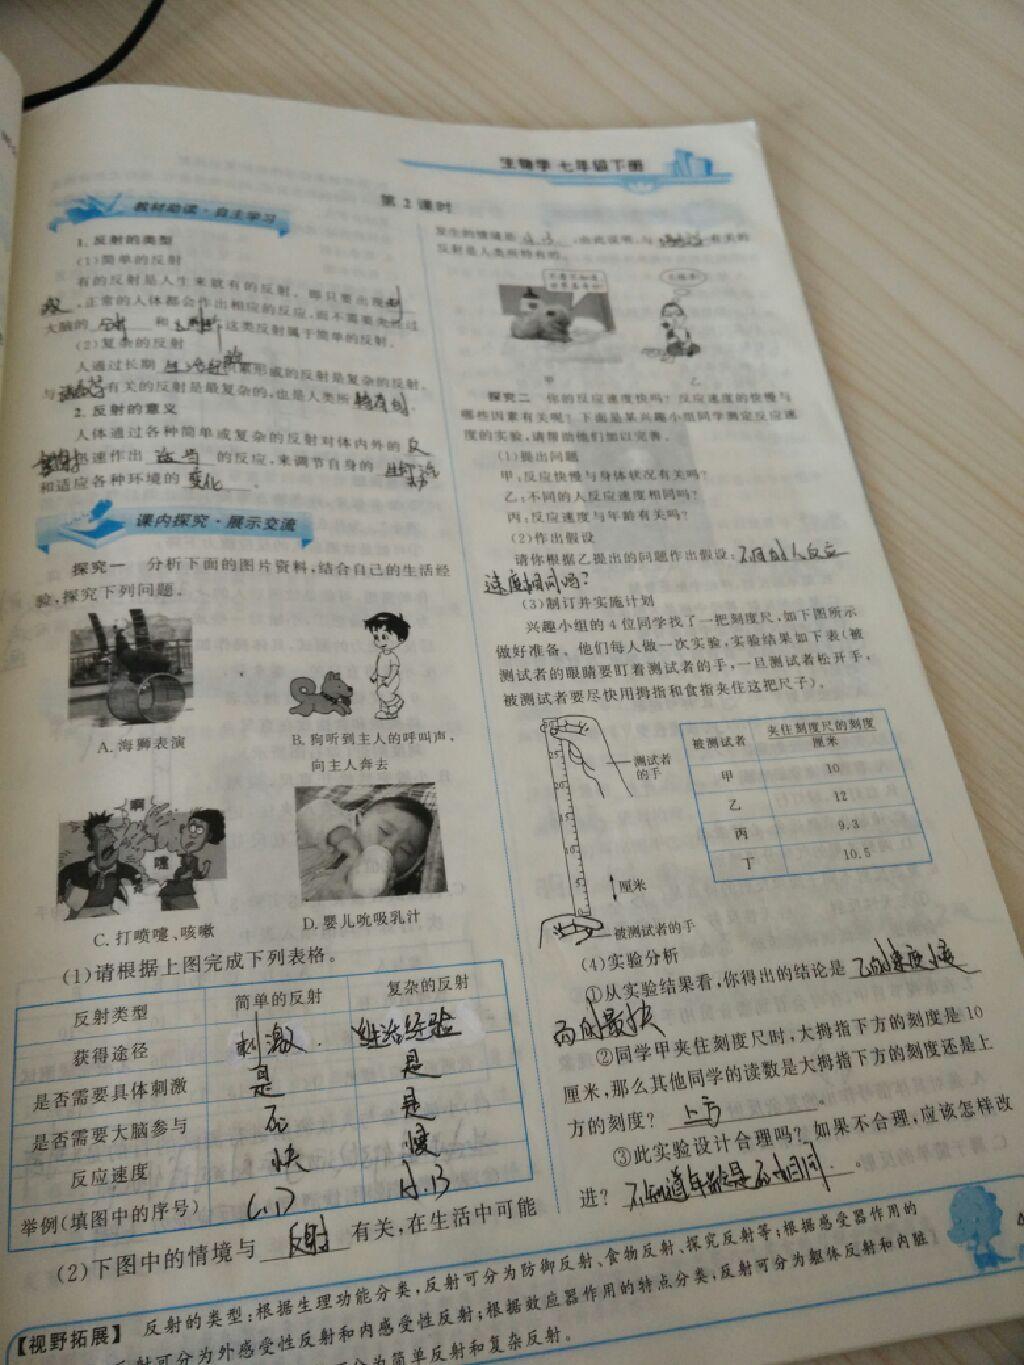 生物学 七年级下册
第2课时
教材助读·自主学习
1. 反射的类型
(1)简单的反射
有的反射是人生来就有的反射。即只要出现刺
激,正常的人体都会作出相应的反应,而不需要先经过
大脑的 和 ,这类反射属于简单的反射。
(2)复杂的反射
人通过长期 生活经验 积累形成的反射是复杂的反射。
与 有关的反射是最复杂的,也是人类所 特有的 。
2. 反射的意义
人体通过各种简单或复杂的反射对体内外的
迅速作出 适当 的反应,来调节自身的
和适应各种环境的 变化 。
课内探究·展示交流
探究一 分析下面的图片资料,结合自己的生活经
验,探究下列问题。
A. 海狮表演
B. 狗听到主人的呼叫声,
向主人奔去
啊
嚏
C. 打喷嚏、咳嗽
D. 婴儿吮吸乳汁
(1)请根据上图完成下列表格。
反射类型 简单的反射 复杂的反射
获得途径 刺激 生活经验
是否需要具体刺激 是 是
是否需要大脑参与 否 是
反应速度 快 慢
举例(填图中的序号) C.D A.B
(2)下图中的情境与 反射 有关,在生活中可能
发生的情境是 ,由此说明,与 有关的
反射是人类所特有的。
甲 乙
探究二 你的反应速度快吗?反应速度的快慢与
哪些因素有关呢?下面是某兴趣小组同学测定反应速
度的实验,请帮助他们加以完善。
(1)提出问题
甲:反应快慢与身体状况有关吗?
乙:不同的人反应速度相同吗?
丙:反应速度与年龄有关吗?
(2)作出假设
请你根据乙提出的问题作出假设:不同的人反应
速度相同吗?
(3)制订并实施计划
兴趣小组的4位同学找了一把刻度尺,如下图所示
做好准备。他们每人做一次实验,实验结果如下表(被
测试者的眼睛要盯着测试者的手,一旦测试者松开手,
被测试者要尽快用拇指和食指夹住这把尺子)。
测试者
的手
厘米
被测试者的手
被测试者 夹住刻度尺的刻度/厘米
甲 10
乙 12
丙 9.3
丁 10.5
(4)实验分析
①从实验结果看,你得出的结论是 乙的速度慢
丙的最快
②同学甲夹住刻度尺时,大拇指下方的刻度是10
厘米,那么其他同学的读数是大拇指下方的刻度还是上
方的刻度? 上方 。
③此实验设计合理吗?如果不合理,应该怎样改
进? 不知道年龄是否相同 。
【视野拓展】 反射的类型:根据生理功能分类,反射可分为防御反射、食物反射、探究反射等;根据感受器作用的
射可分为外感受性反射和内感受性反射;根据效应器作用的特点分类,反射可分为躯体反射和内脏
分为简单反射和复杂反射。